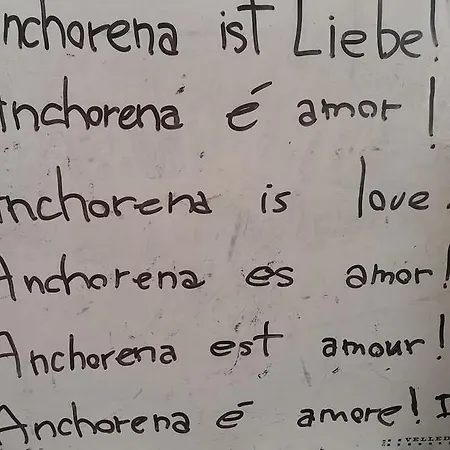 nchorena ist Liebe!
Anchorena é amor!
Anchorena is love.
Anchorena es amor!
Anchorena est amour!
Anchorena é amore! I
VELLED